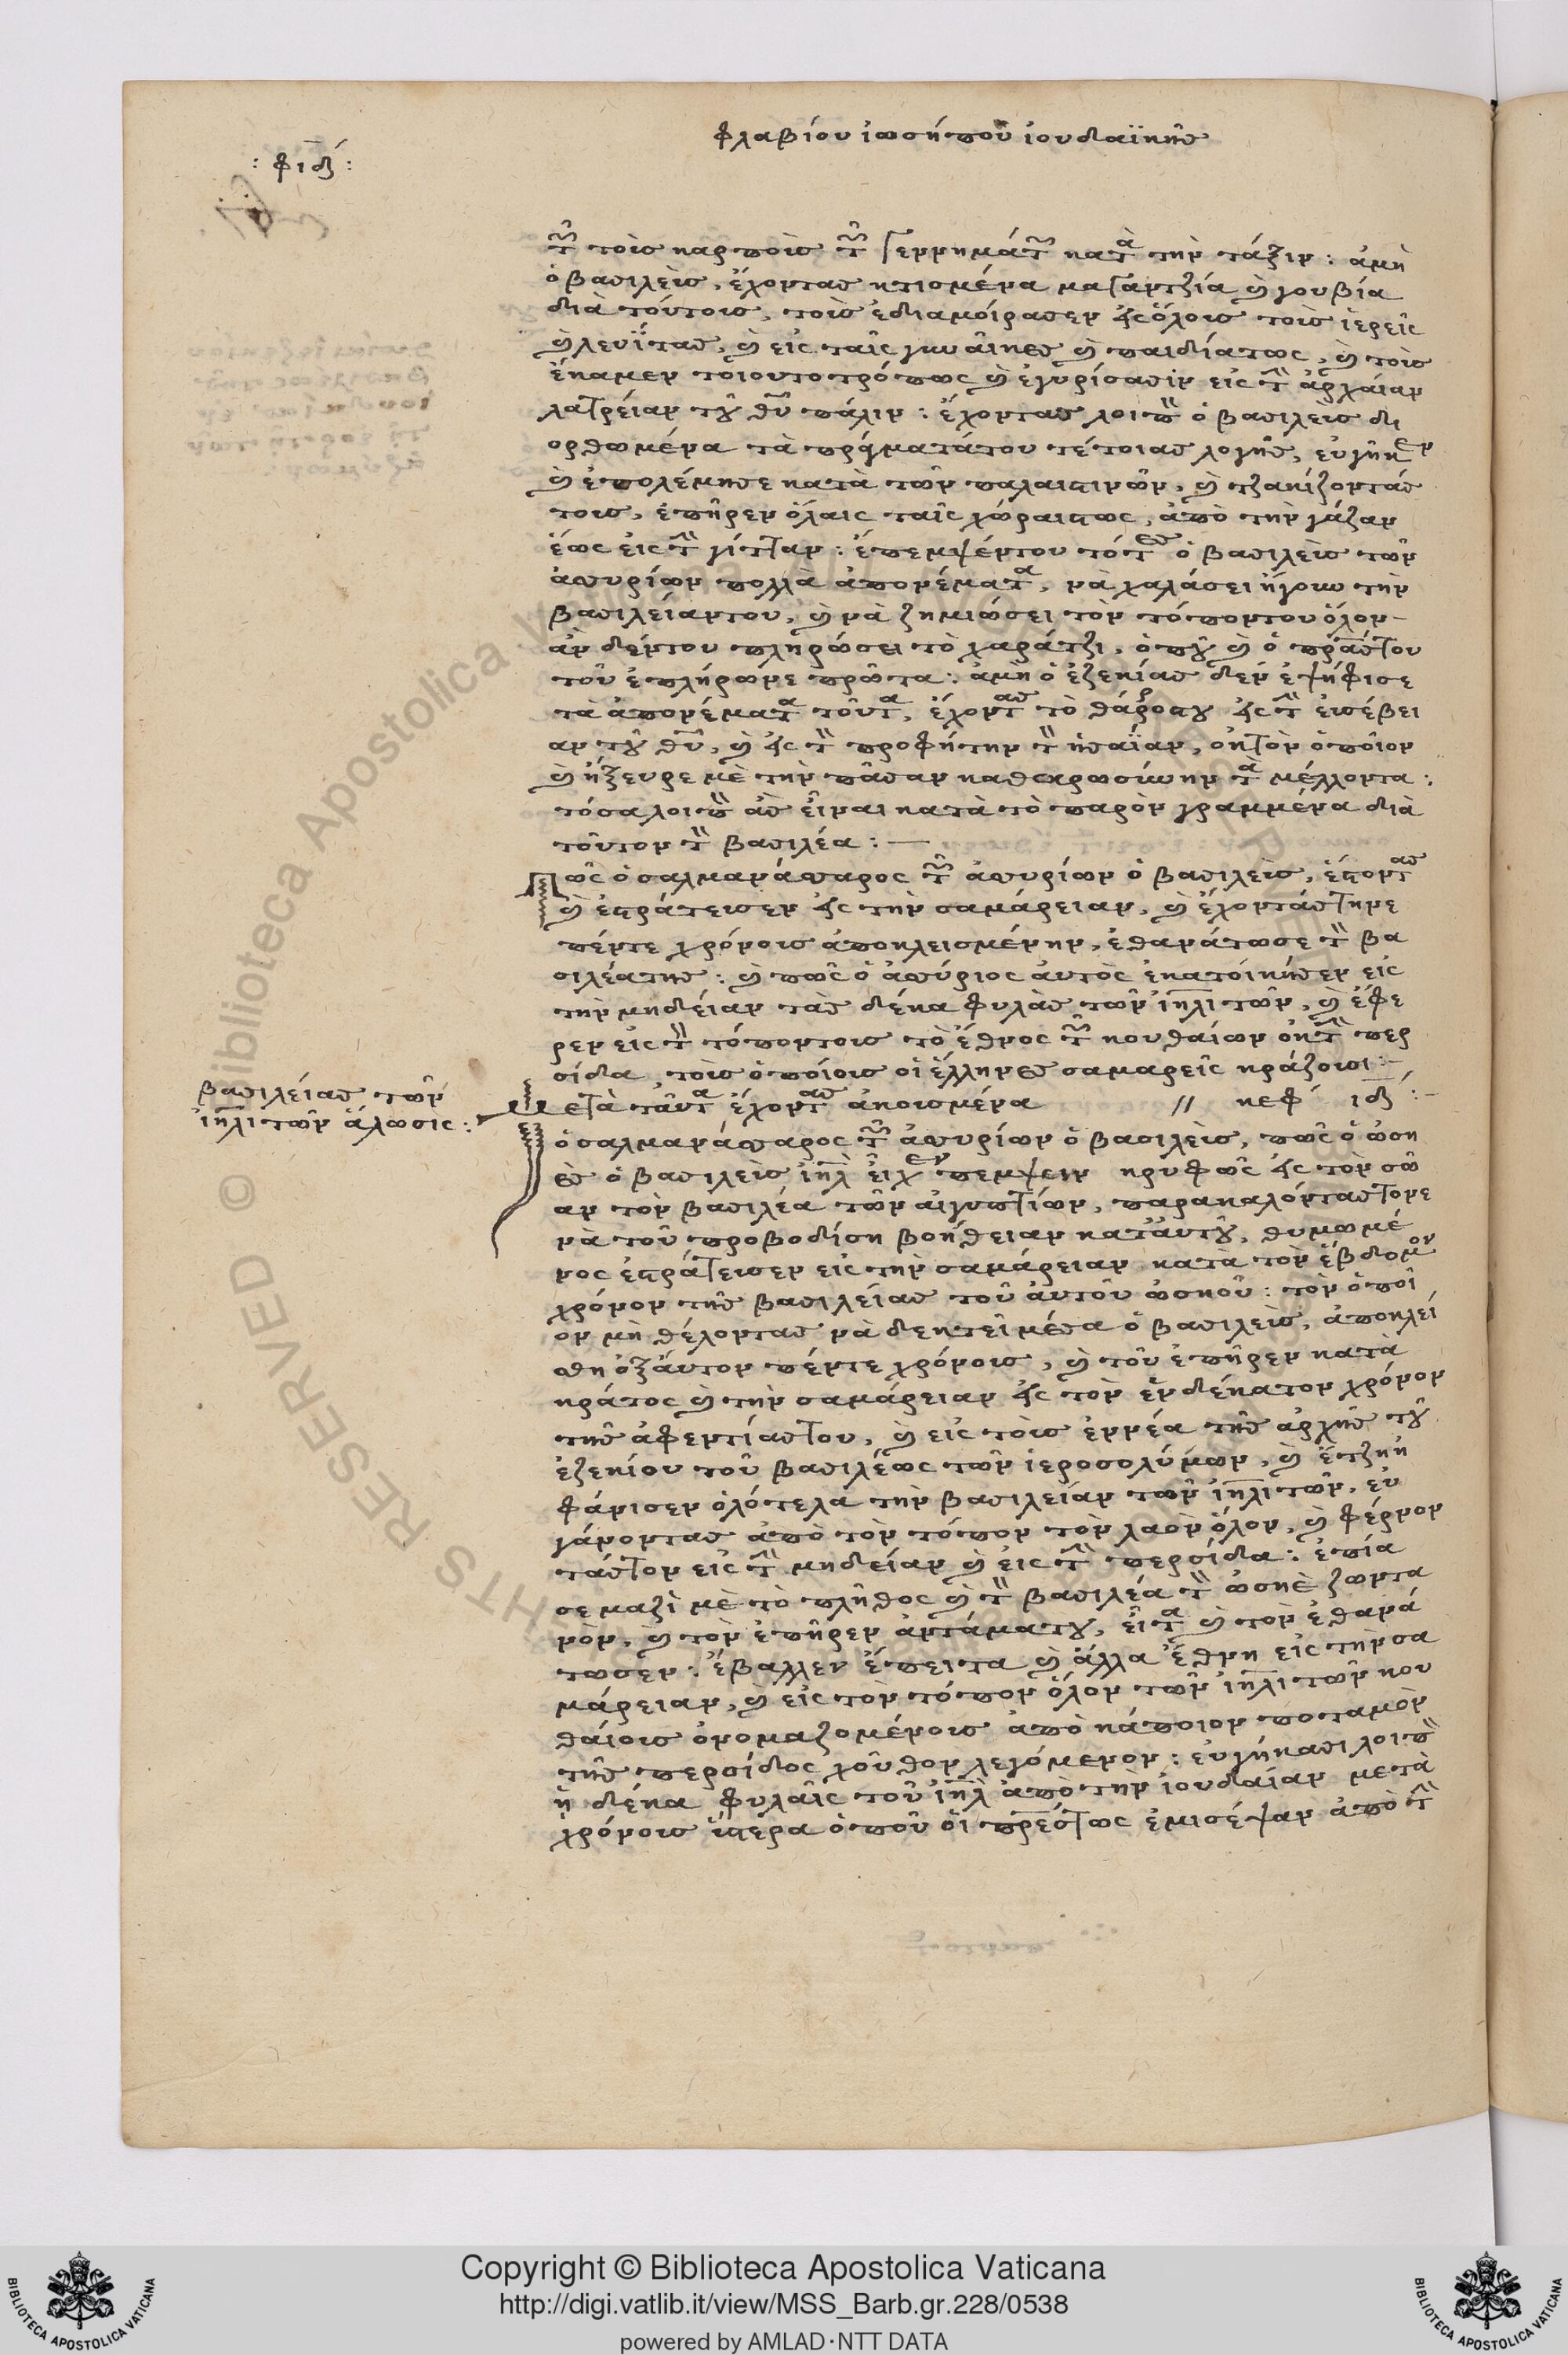 φλαβίου ἰωσήπου ἰουδαϊκῆς
: φιδ΄ :
τοὺς καρποὺς τῶν γεννημάτων κατὰ τὴν τάξιν : ἀμὴ
ὁ βασιλεὺς, ἔχοντας κτισμένα μαγαντζία καὶ γουβία
διὰ τούτους, τοὺς ἐδιαμοίρασεν εἰς ὅλους τοὺς ἱερεῖς
καὶ λευΐτας, καὶ εἰς ταῖς γυναῖκες καὶ παιδίατως, καὶ τοὺς
ἔκαμεν τοιουτοτρόπως καὶ ἐγύρισασιν εἰς τὴν ἀρχαίαν
λατρείαν τοῦ θυ πάλιν : ἔχοντας λοιπὸν ὁ βασιλεὺς δι
ορθωμένα τὰ πράγματάτου τέτοιας λογῆς, εὐγῆκεν
καὶ ἐπολέμησε κατὰ τῶν παλαιστινῶν, καὶ τζακίζοντάς
τους, ἐπῆρεν ὅλαις ταῖς χώραιςτως, ἀπὸ τὴν γάζαν
ἕως εἰς τὴν γίτταν : ἔπεμψέντου τότες ὁ βασιλεὺς τῶν
ἀσσυρίων πολλὰ ἀπονέματα, νὰ χαλάσει ἤγουν τὴν
βασιλείαντου, καὶ νὰ ζημιώσει τὸν τόποντου ὅλον
ἂν δέντου πληρώσει τὸ χαράτζι, ὁποῦ καὶ ὁ πράστου
τοῦ ἐπλήρωνε πρῶτα : ἀμὴ ὁ ἐζεκίας δὲν ἐψήφισε
τὰ ἀπονέματα τοῦτα, ἔχοντας τὸ θάρος του εἰς τὴν εὐσέβει
αν τοῦ θυ, καὶ εἰς τὸν προφήτην τὸν ἡσαΐαν,
καὶ ἤξευρε μὲ τὴν πᾶσαν καθαρωσύνην τὰ μέλλοντα :
τόσα λοιπὸν ἂς εἶναι κατὰ τὸ παρὸν γραμμένα διὰ
τοῦτον τὸν βασιλέα : —
Πῶς ὁ σαλμανάσσαρος τῶν ἀσσυρίων ὁ βασιλεὺς,
καὶ ἐστράτευσεν εἰς τὴν σαμάρειαν, καὶ ἔχοντάςτηνε
πέντε χρόνους ἀποκλεισμένην, ἐθανάτωσε τὸν βα
σιλέατης : καὶ πῶς ὁ ἀσσύριος αὐτὸς ἐκατοίκησεν εἰς
τὴν μηδείαν τὰς δέκα φυλὰς τῶν ἰηλιτῶν, καὶ ἔφε
ρεν εἰς τὸν τόποντους τὸ ἔθνος τῶν κουθαίων ἐκ τὴν περ
σίδα, τοὺς ὁποίους οἱ ἕλληνες σαμαρεῖς κράζουσι : –
βασιλείας τῶν
ἰηλιτῶν ἅλωσις :
Μετὰ ταῦτα ἔχοντας ἀκουσμένα // κεφ΄ ιδ΄ : –
ὁ σαλμανάσσαρος τῶν ἀσσυρίων ὁ βασιλεὺς, πῶς ὁ ὠση
ὲς ὁ βασιλεὺς ἰηλ εἶχεν πέμψειν κρυφῶς εἰς τὸν σῶ
αν τὸν βασιλέα τῶν αἰγυπτίων, παρακαλόντας τονε
νὰ τοῦ προβοδίση βοήθειαν κατ' αὐτοῦ, θυμωμέ
νος ἐστράτευσεν εἰς τὴν σαμάρειαν κατὰ τὸν ἕβδομον
χρόνον τῆς βασιλείας τοῦ αὐτοῦ ὠσηοῦ : τὸν ὁποῖ
ον μὴ θέλοντας νὰ δεχτεῖ μέσα ὁ βασιλεὺς, ἀποκλεί
σθη ὀξ' αὐτον πέντε χρόνους, καὶ τοῦ ἐπῆρεν κατὰ
κράτος καὶ τὴν σαμάρειαν εἰς τὸν ἑνδέκατον χρόνον
τῆς ἀφεντίαςτου, καὶ εἰς τοὺς ἐννέα τῆς ἀρχῆς τοῦ
ἐζεκίου τοῦ βασιλέως τῶν ἱεροσολύμων, καὶ ἔτζη ἠ
φάνισεν ὁλότελα τὴν βασιλείαν τῶν ἰηλιτῶν, εὐ
γάνοντας ἀπὸ τὸν τόπον τὸν λαὸν ὅλον, καὶ φέρνον
τάςτον εἰς τὴν μηδείαν καὶ εἰς τὴν περσίδα : ἐπία
σε μαζὶ μὲ τὸ πλῆθος καὶ τὸν βασιλέα τὸν ὠσηὲ ζωντα
νὸν, καὶ τὸν ἐπῆρεν ἀντάματου, εἶτα καὶ τὸν ἐθανά
τωσεν : ἔβαλλεν ἔπειτα καὶ ἄλλα ἔθνη εἰς τὴν σα
μάρειαν, καὶ εἰς τὸν τόπον ὅλον τῶν ἰηλιτῶν κου
θαίους ὀνομαζομένους ἀπὸ κάποιον ποταμὸν
τῆς περσίδος χοῦθον λεγόμενον : εὐγήκασι λοιπὸν
ἡ δέκα φυλαῖς τοῦ ἰηλ ἀπὸ τὴν ἰουδαίαν μετὰ
χρόνους ὕστερα ὁποῦ οἱ πρέστως ἐμισέψαν ἀπὸ τὴν
Copyright © Biblioteca Apostolica Vaticana
http://digi.vatlib.it/view/MSS_Barb.gr.228/0538
powered by AMLAD·NTT DATA